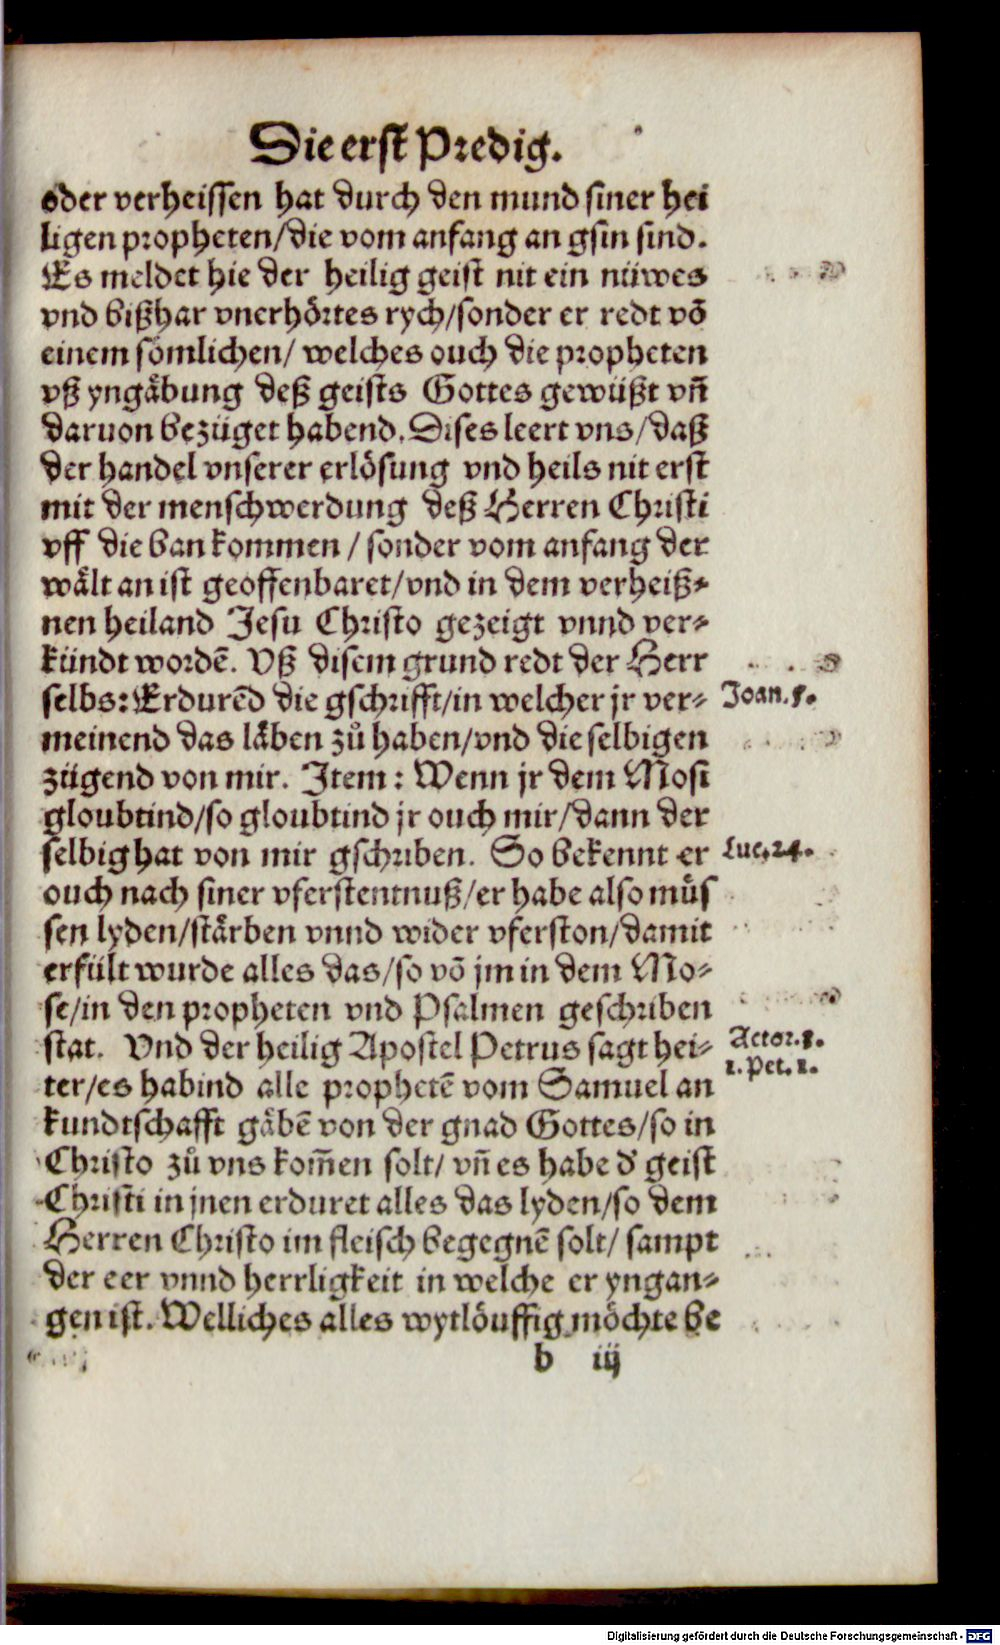 Die erst Predig.
oder verheissen hat durch den mund siner hei
ligen propheten/die vom anfang an gsin sind.
Es meldet hie der heilig geist nit ein nüwes
vnd bißhar vnerhörtes rych/sonder er redt võ
einem sömlichen/ welches ouch die propheten
vß yngäbung deß geists Gottes gewüßt vñ
daruon bezüget habend. Dises leert vns/daß
der handel vnserer erlösung vnd heils nit erst
mit der menschwerdung deß Herren Christi
vff die ban kommen / sonder vom anfang der
wält an ist geoffenbaret/vnd in dem verheiß-
nen heiland Jesu Christo gezeigt vnnd ver-
kündt wordẽ. Vß disem grund redt der Herr
selbs: Erdurẽd die gschrifft/in welcher jr ver-
Joan. 5.
meinend das läben zů haben/vnd die selbigen
zügend von mir. Item: Wenn jr dem Mosi
gloubtind/so gloubtind jr ouch mir/dann der
selbig hat von mir gschriben. So bekennt er
Luc. 24.
ouch nach siner vferstentnuß/er habe also müs
sen lyden/stärben vnnd wider vferston/damit
erfült wurde alles das/so võ jm in dem Mo-
se/in den propheten vnd Psalmen geschriben
stat. Vnd der heilig Apostel Petrus sagt hei-
Actor. 8.
1. Pet. 1.
ter/es habind alle prophetẽ vom Samuel an
kundtschafft gäbẽ von der gnad Gottes/so in
Christo zů vns kom̃en solt/ vñ es habe d' geist
Christi in jnen erduret alles das lyden/so dem
Herren Christo im fleisch begegnẽ solt/ sampt
der eer vnnd herrligkeit in welche er yngan-
gen ist. Welliches alles wytlöuffig möchte be
b iij
Digitalisierung gefördert durch die Deutsche Forschungsgemeinschaft - DFG